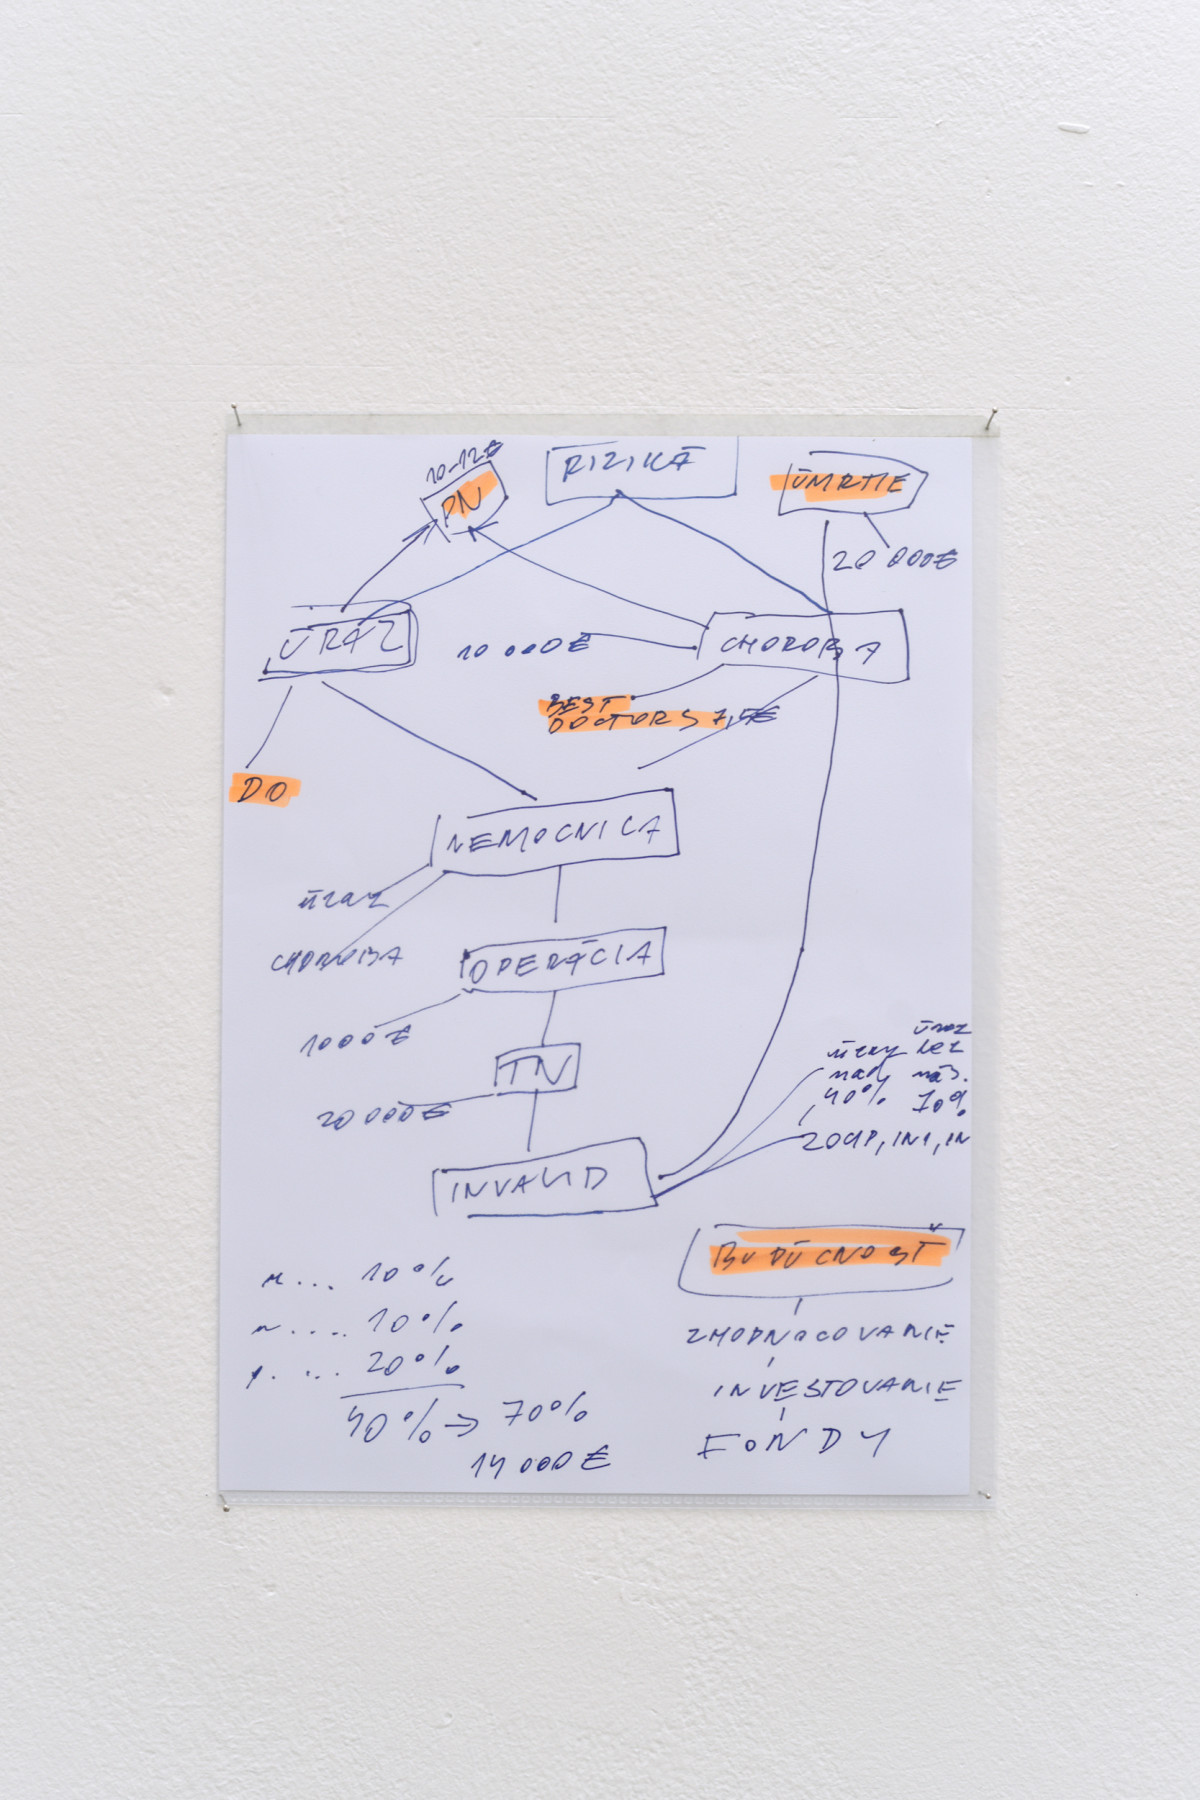 10-12€
PN
RIZIKÁ
ÚMRTIE
20 000€
ÚRAZ
10 000€
CHOROBA
BEST
DOCTORS 7,5€
DO
NEMOCNICA
úraz
CHOROBA
OPERÁCIA
1000€
TN
20 000€
INVALID
úraz
úrazy bez
nad nás.
40% 70%
ZOCHP, IN1, IN
BUDÚCNOSŤ
ZHODNOCOVANIE
INVESTOVANIE
FONDY
10%
10%
20%
40% → 70%
14 000€